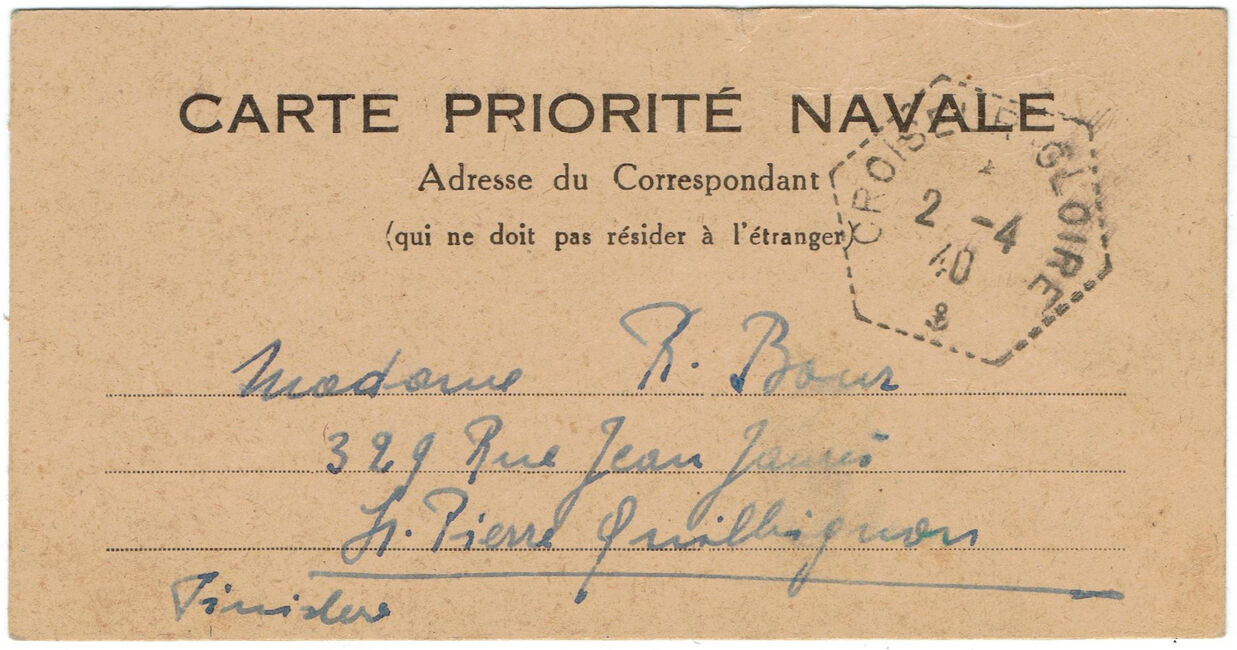 CARTE PRIORITÉ NAVALE
Adresse du Correspondant
(qui ne doit pas résider à l'étranger)
CROISEUR GLOIRE
*
2 -4
40
8
Madame R. Bour
329 Rue Jean Jaurès
St. Pierre Quilbignon
Finistère